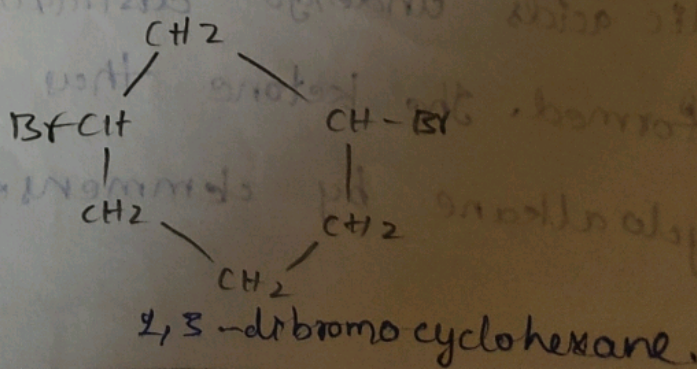 CH2
Br-CH CH-Br
CH2 CH2
CH2
1,3-dibromocyclohexane.